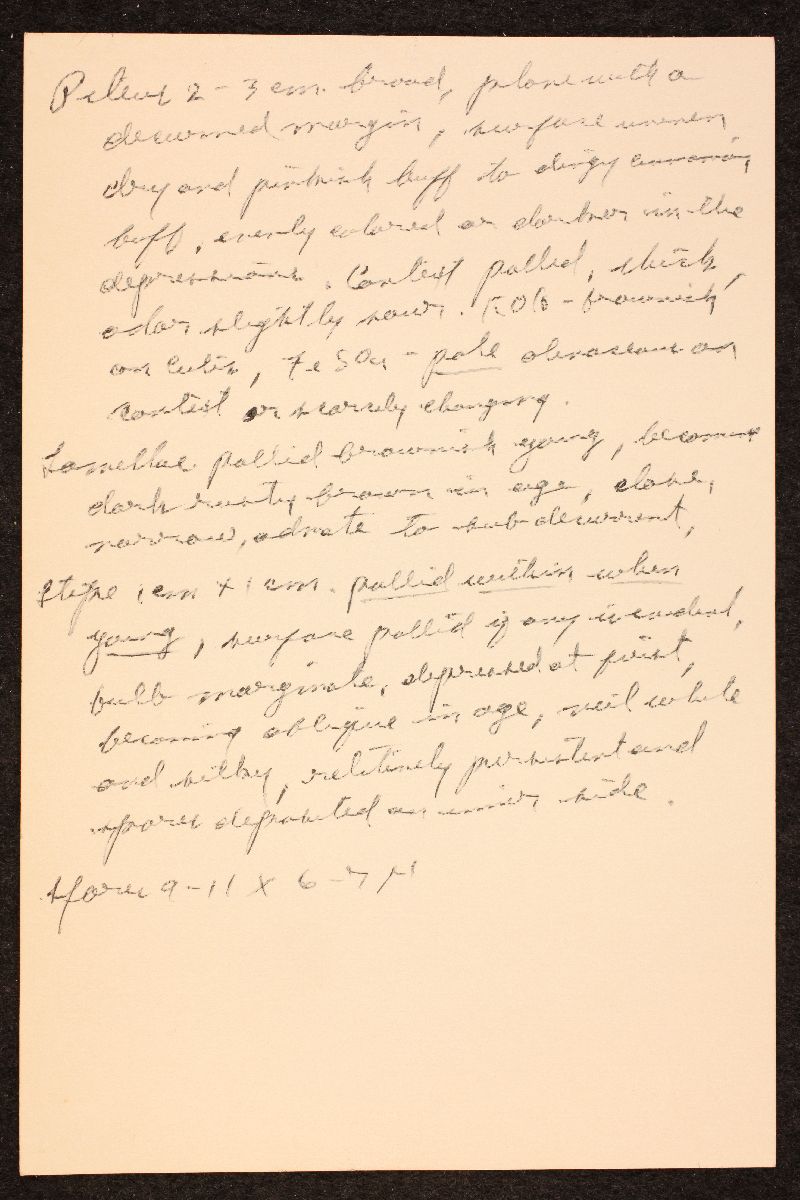 Pileus 2 - 3 cm. broad, plane with a
decurved margin, surface uneven,
dry and pinkish buff to dingy cinnamon
buff, evenly colored or darker in the
depressions. Context pallid, thick,
odor slightly sour. KOH - brownish
on cutis, FeSO4 - pale olivaceous on
context or scarcely changing.
Lamellae pallid brownish young, becoming
dark rusty brown in age, close,
narrow, adnate to subdecurrent,
Stipe 1 cm x 1 cm. pallid within when
young, surface pallid if any is evident,
bulb marginate, depressed at first,
becoming oblique in age, veil white
and silky, relatively persistent and
spores deposited on inner side.
Spores 9-11 X 6-7 µ